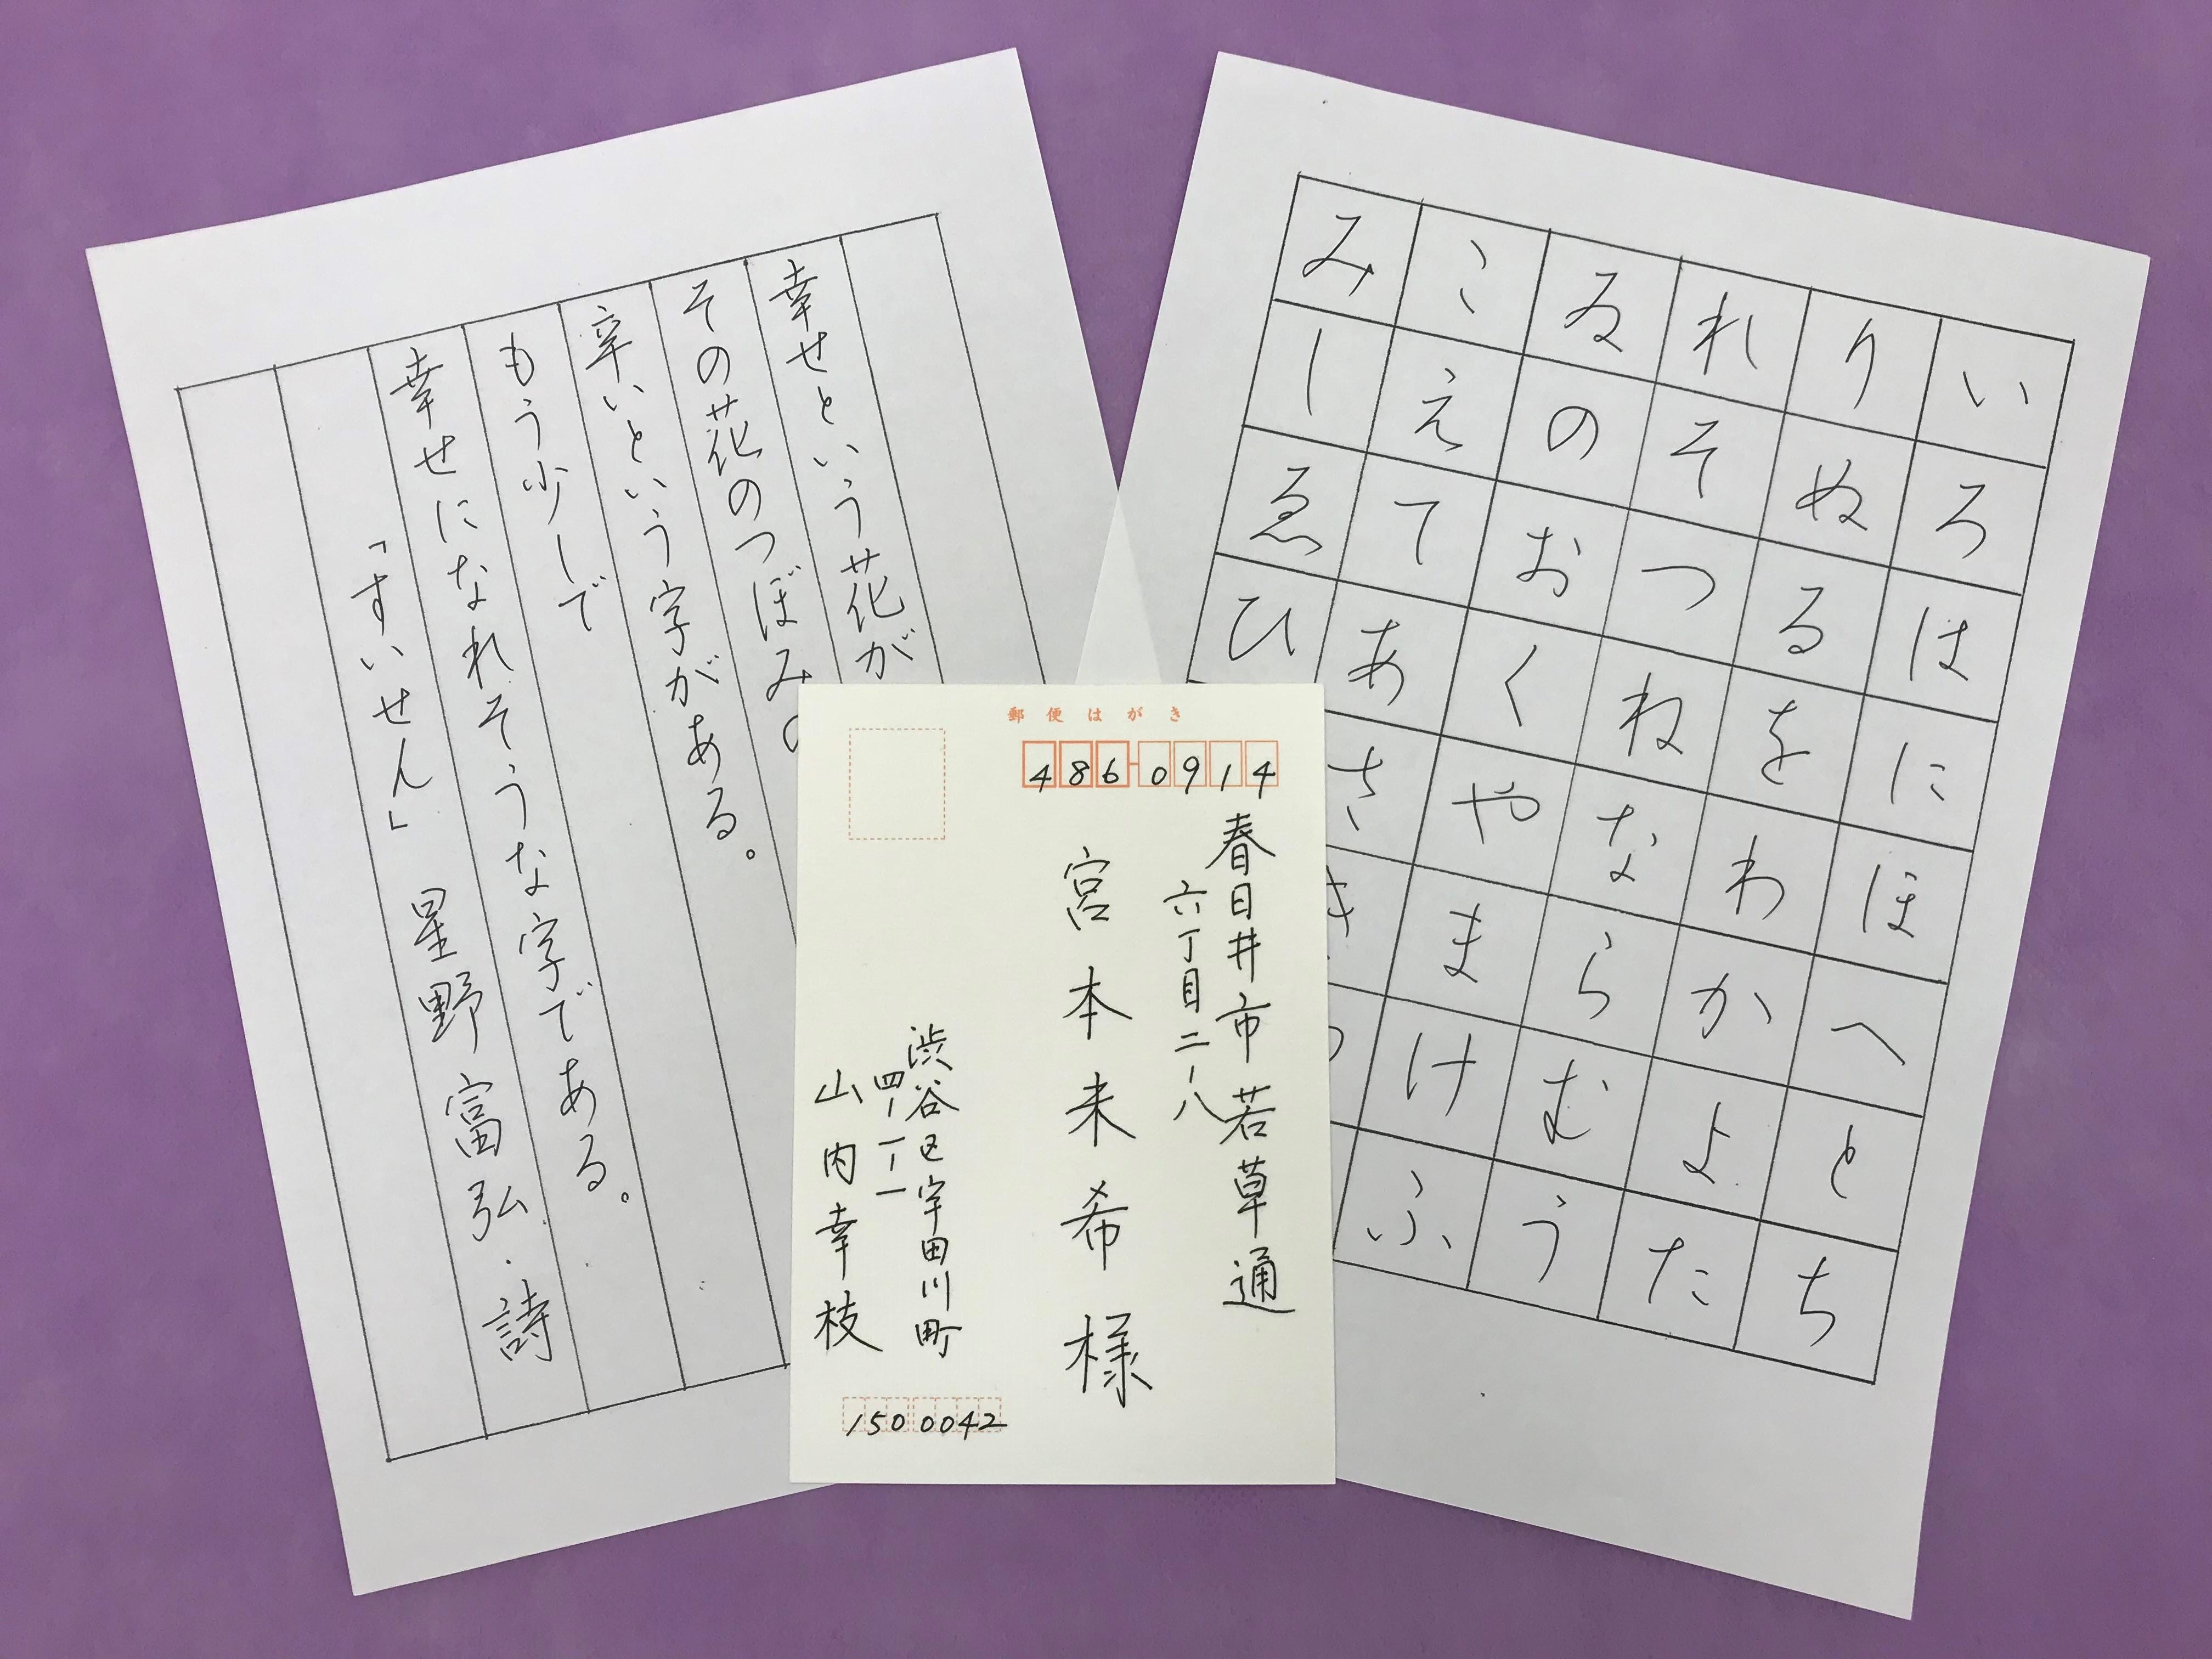 幸せという花が
その花のつぼみ
辛いという字がある。
もう少しで
幸せになれそうな字である。
「すいせん」 星野富弘・詩
郵便はがき
486-0914
春日井市若草通
六丁目二ー八
宮本未希様
渋谷区宇田川町
四ー一ー一
山内幸枝
150 0042
いろはにほへとち
りぬるをわかよた
れそつねならむう
ゐのおくやまけふ
こえてあさき
みしゑひ